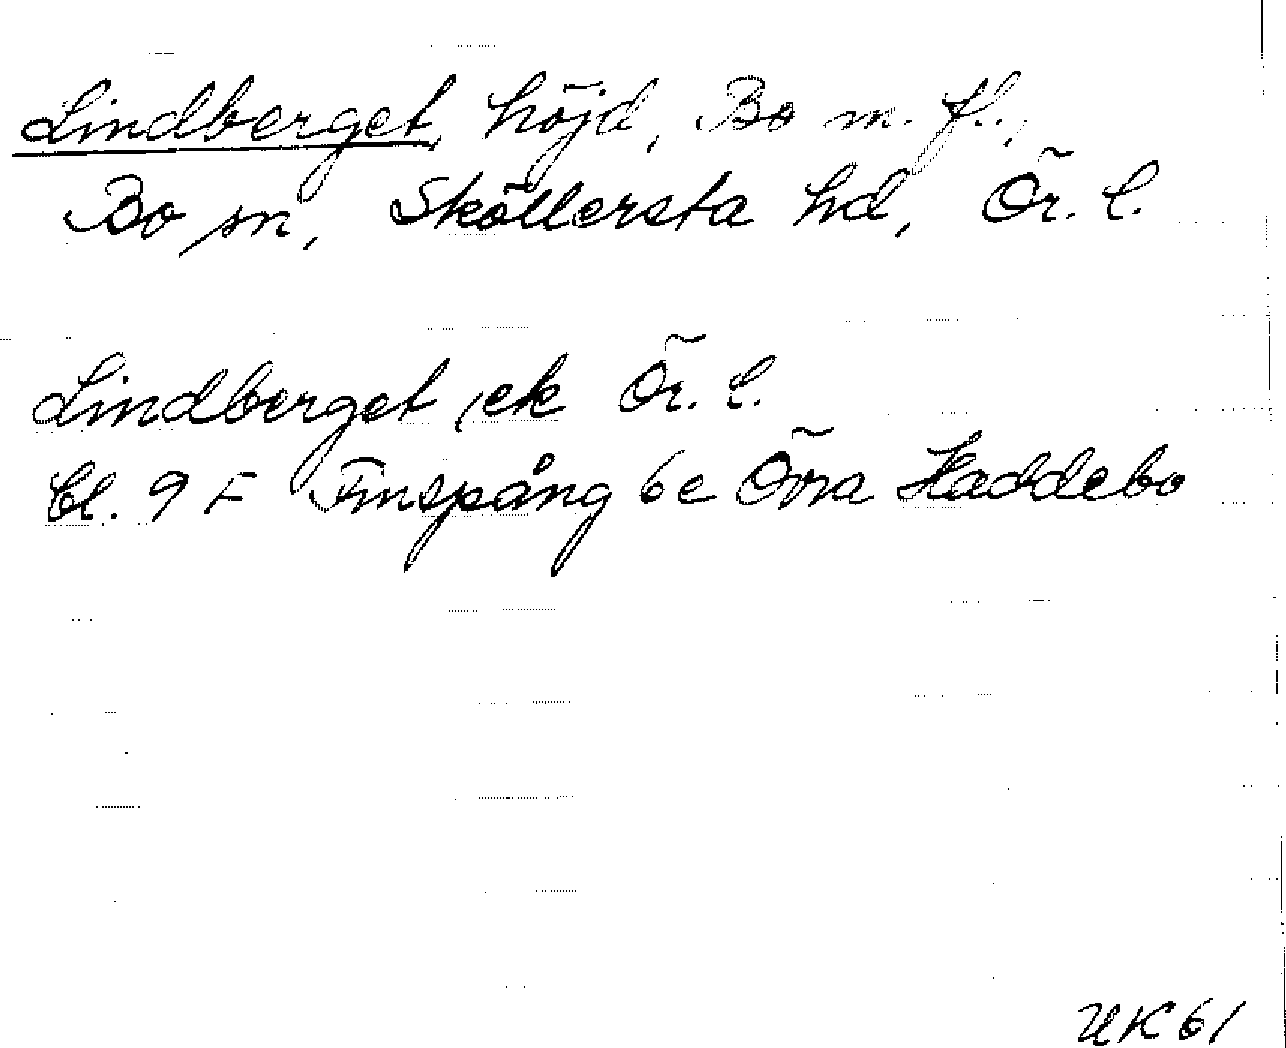 Lindberget, höjd, Bo m. fl.,
Bo sn, Sköllersta hd, Ör. l.
Lindberget, ek Ör. l.
Bl. 9 F Finspång 6e Övra Haddebo
UK 61